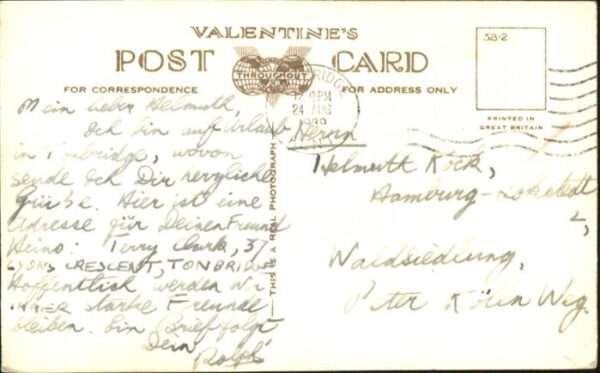 VALENTINE'S
POST CARD
THROUGHOUT
FOR CORRESPONDENCE
FOR ADDRESS ONLY
38-2
PRINTED IN
GREAT BRITAIN
BRIDGE
PM
24 AUG
THIS IS A REAL PHOTOGRAPH
Mein lieber Helmuth,
Ich bin auf Urlaub
in Tonbridge, wovon
sende Ich Dir herzliche
Grüße. Hier ist eine
Adresse für Deinen Freund
Heino: Terry Clark, 37
LYONS CRESCENT, TONBRIDGE
Hoffentlich werden wir
IMMER starke Freunde
bleiben. Ein Brief folgt
Dein
Rolf
Herrn
Helmuth Kock,
Hamburg-Lokstedt
2,
Waldsiedlung,
Peter Weg.